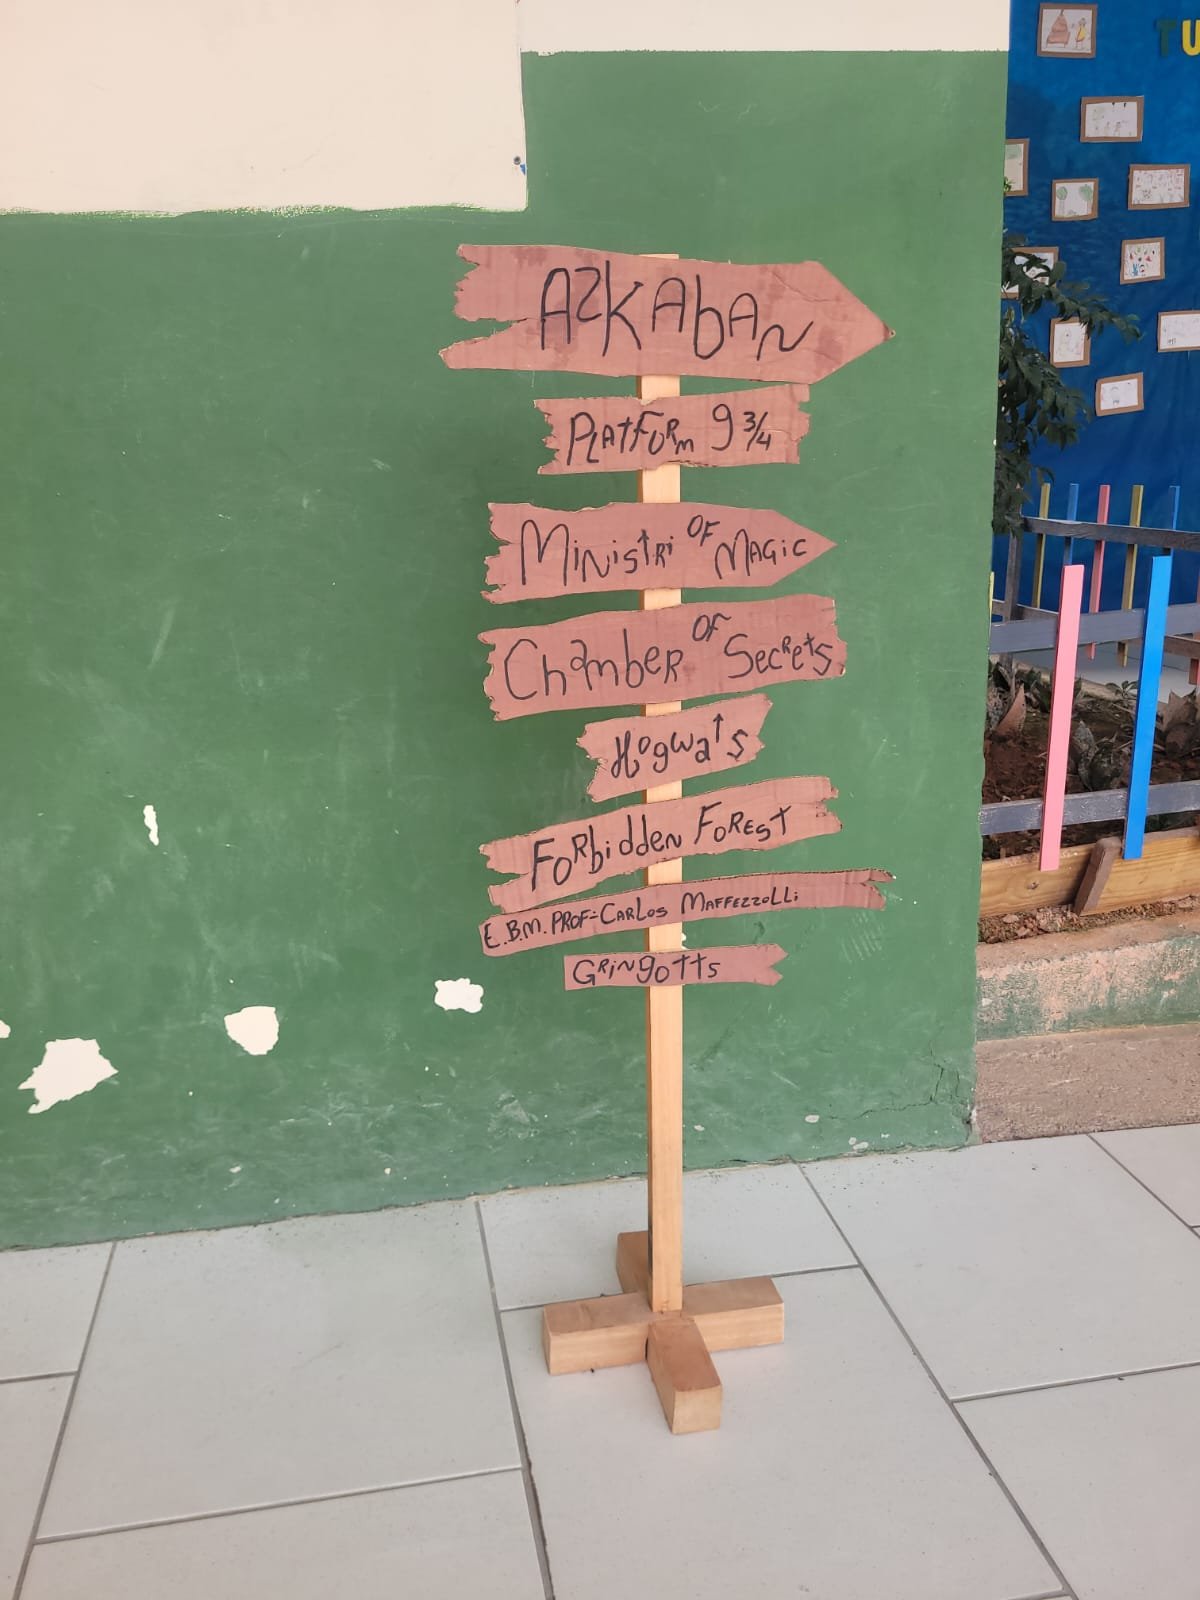 AZKABAN
PLATFORM 9 3/4
MiNiSTRi OF MAGiC
ChAmbER OF SECRETS
HOgwatS
FORbidden FOREST
E.B.M. PROF= CARLOS MAFFEZZOLLi
GRiNgOTTS
TU